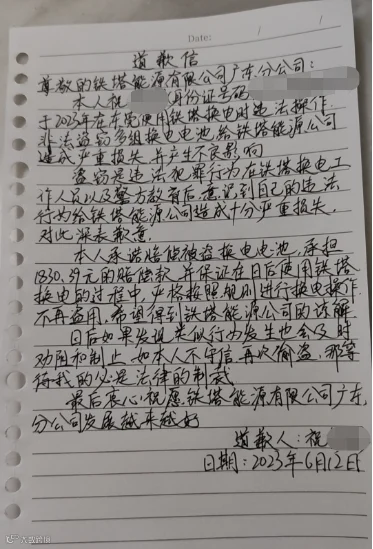 Date: / /
道歉信
尊敬的铁塔能源有限公司广东分公司:
本人祝 (身份证号码
于2023年在东莞使用铁塔换电时违法操作,
非法盗窃多组换电电池,给铁塔能源公司
造成严重损失,并产生不良影响
盗窃是违法犯罪行为在铁塔换电工
作人员以及警方教育后,意识到自己的违法
行为给铁塔能源公司造成十分严重损失,
对此深表歉意.
本人承诺赔偿被盗换电电池,承担
1830.39元的赔偿款,并保证在日后使用铁塔
换电的过程中,严格按照规则进行换电操作
不再盗用,希望得到铁塔能源公司的谅解
日后如果发现类似行为发生也会及时
劝阻和制止,如本人不守信,再次偷盗,那等
待我的必是法律的制裁
最后衷心祝愿铁塔能源有限公司广东
分公司发展越来越好
道歉人:祝
日期:2023年6月12日
大数跨境